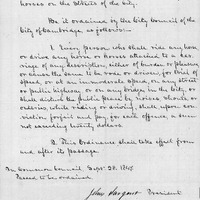 horses on the streets of the city.
Be it ordained by the City Council of the
City of Cambridge, as follows:
1. Every person who shall ride any horse
or drive any horse or horses attached to a car-
riage of any description either of burden or pleasure
or cause the same to be rode or driven, for trial of
speed, or at an immoderate speed, on any street
or public highway or on any bridge in the city, or
shall disturb the public peace by noises, shouts, or
outcries, while riding or driving shall upon con-
viction forfeit and pay, for each offence, a sum
not exceeding twenty dollars.
2. This Ordinance shall take effect from
and after its passage.
In Common Council Sept. 28.
Passed to be ordained.
John Sargent President